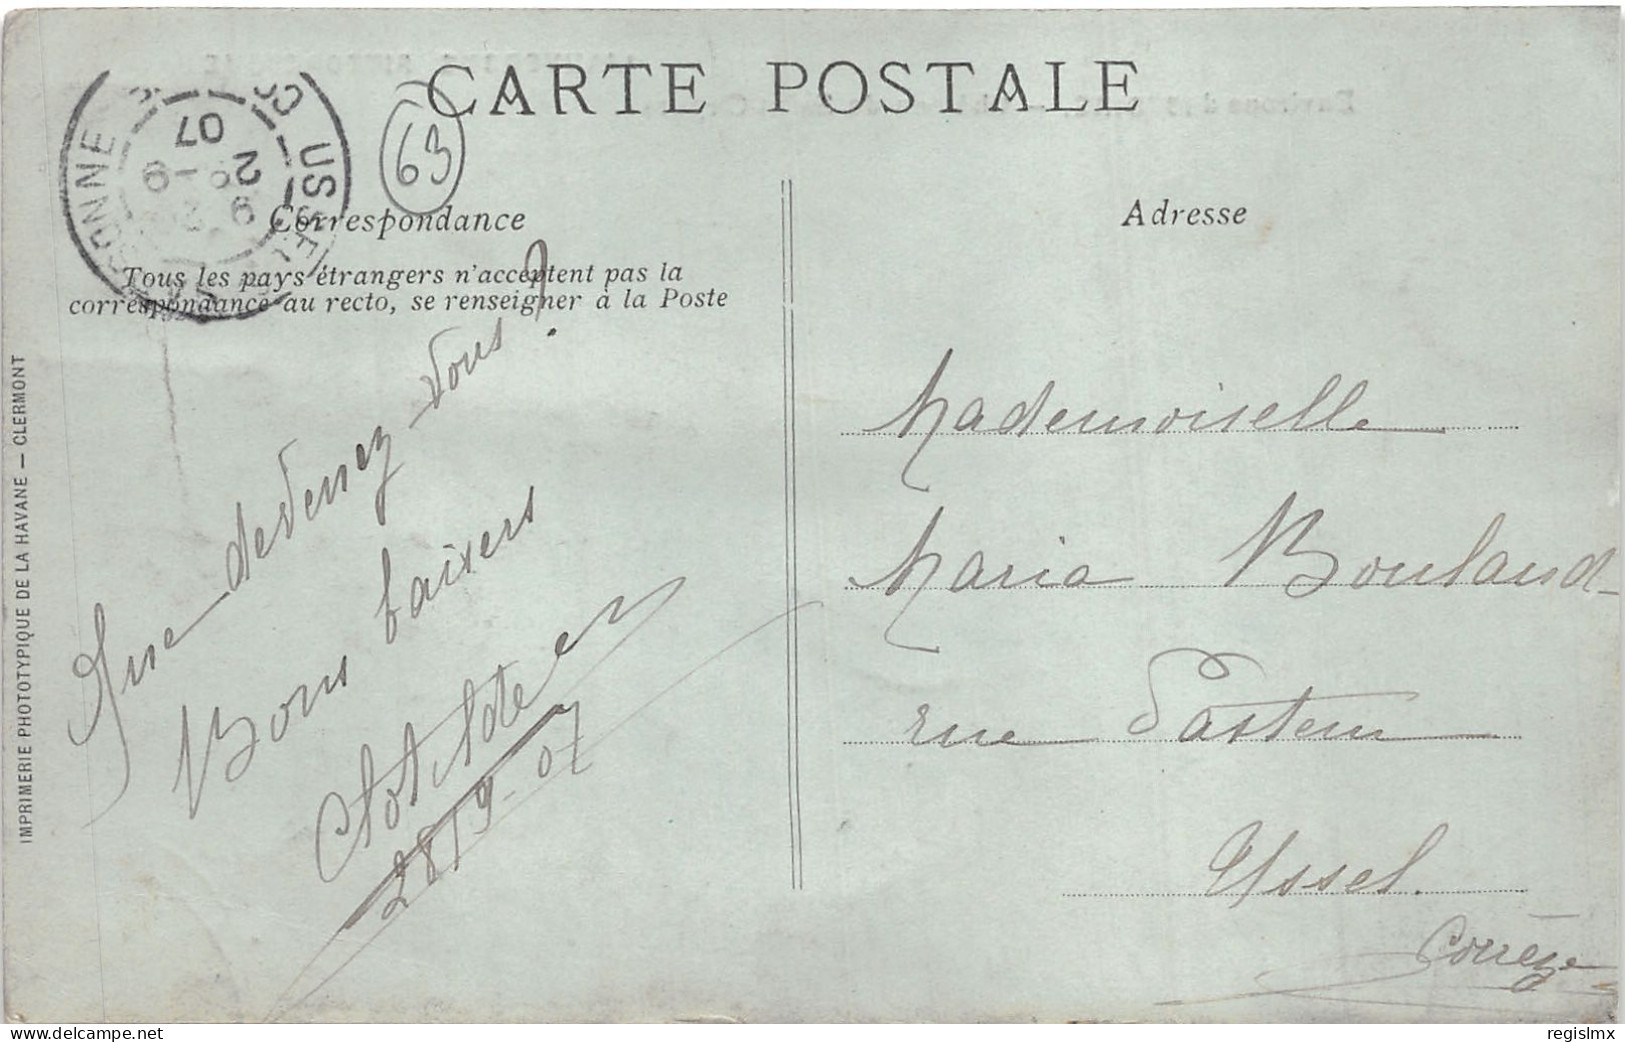 CARTE POSTALE
63
USSEL
07
29
9
Correspondance
Tous les pays étrangers n'acceptent pas la
correspondance au recto, se renseigner à la Poste
Que devenez-vous ?
Bons baisers
28/9-07
Adresse
Mademoiselle
Maria Bouland
rue Pasteur
Ussel.
Corrèze
IMPRIMERIE PHOTOTYPIQUE DE LA HAVANE — CLERMONT
www.delcampe.net
regislmx